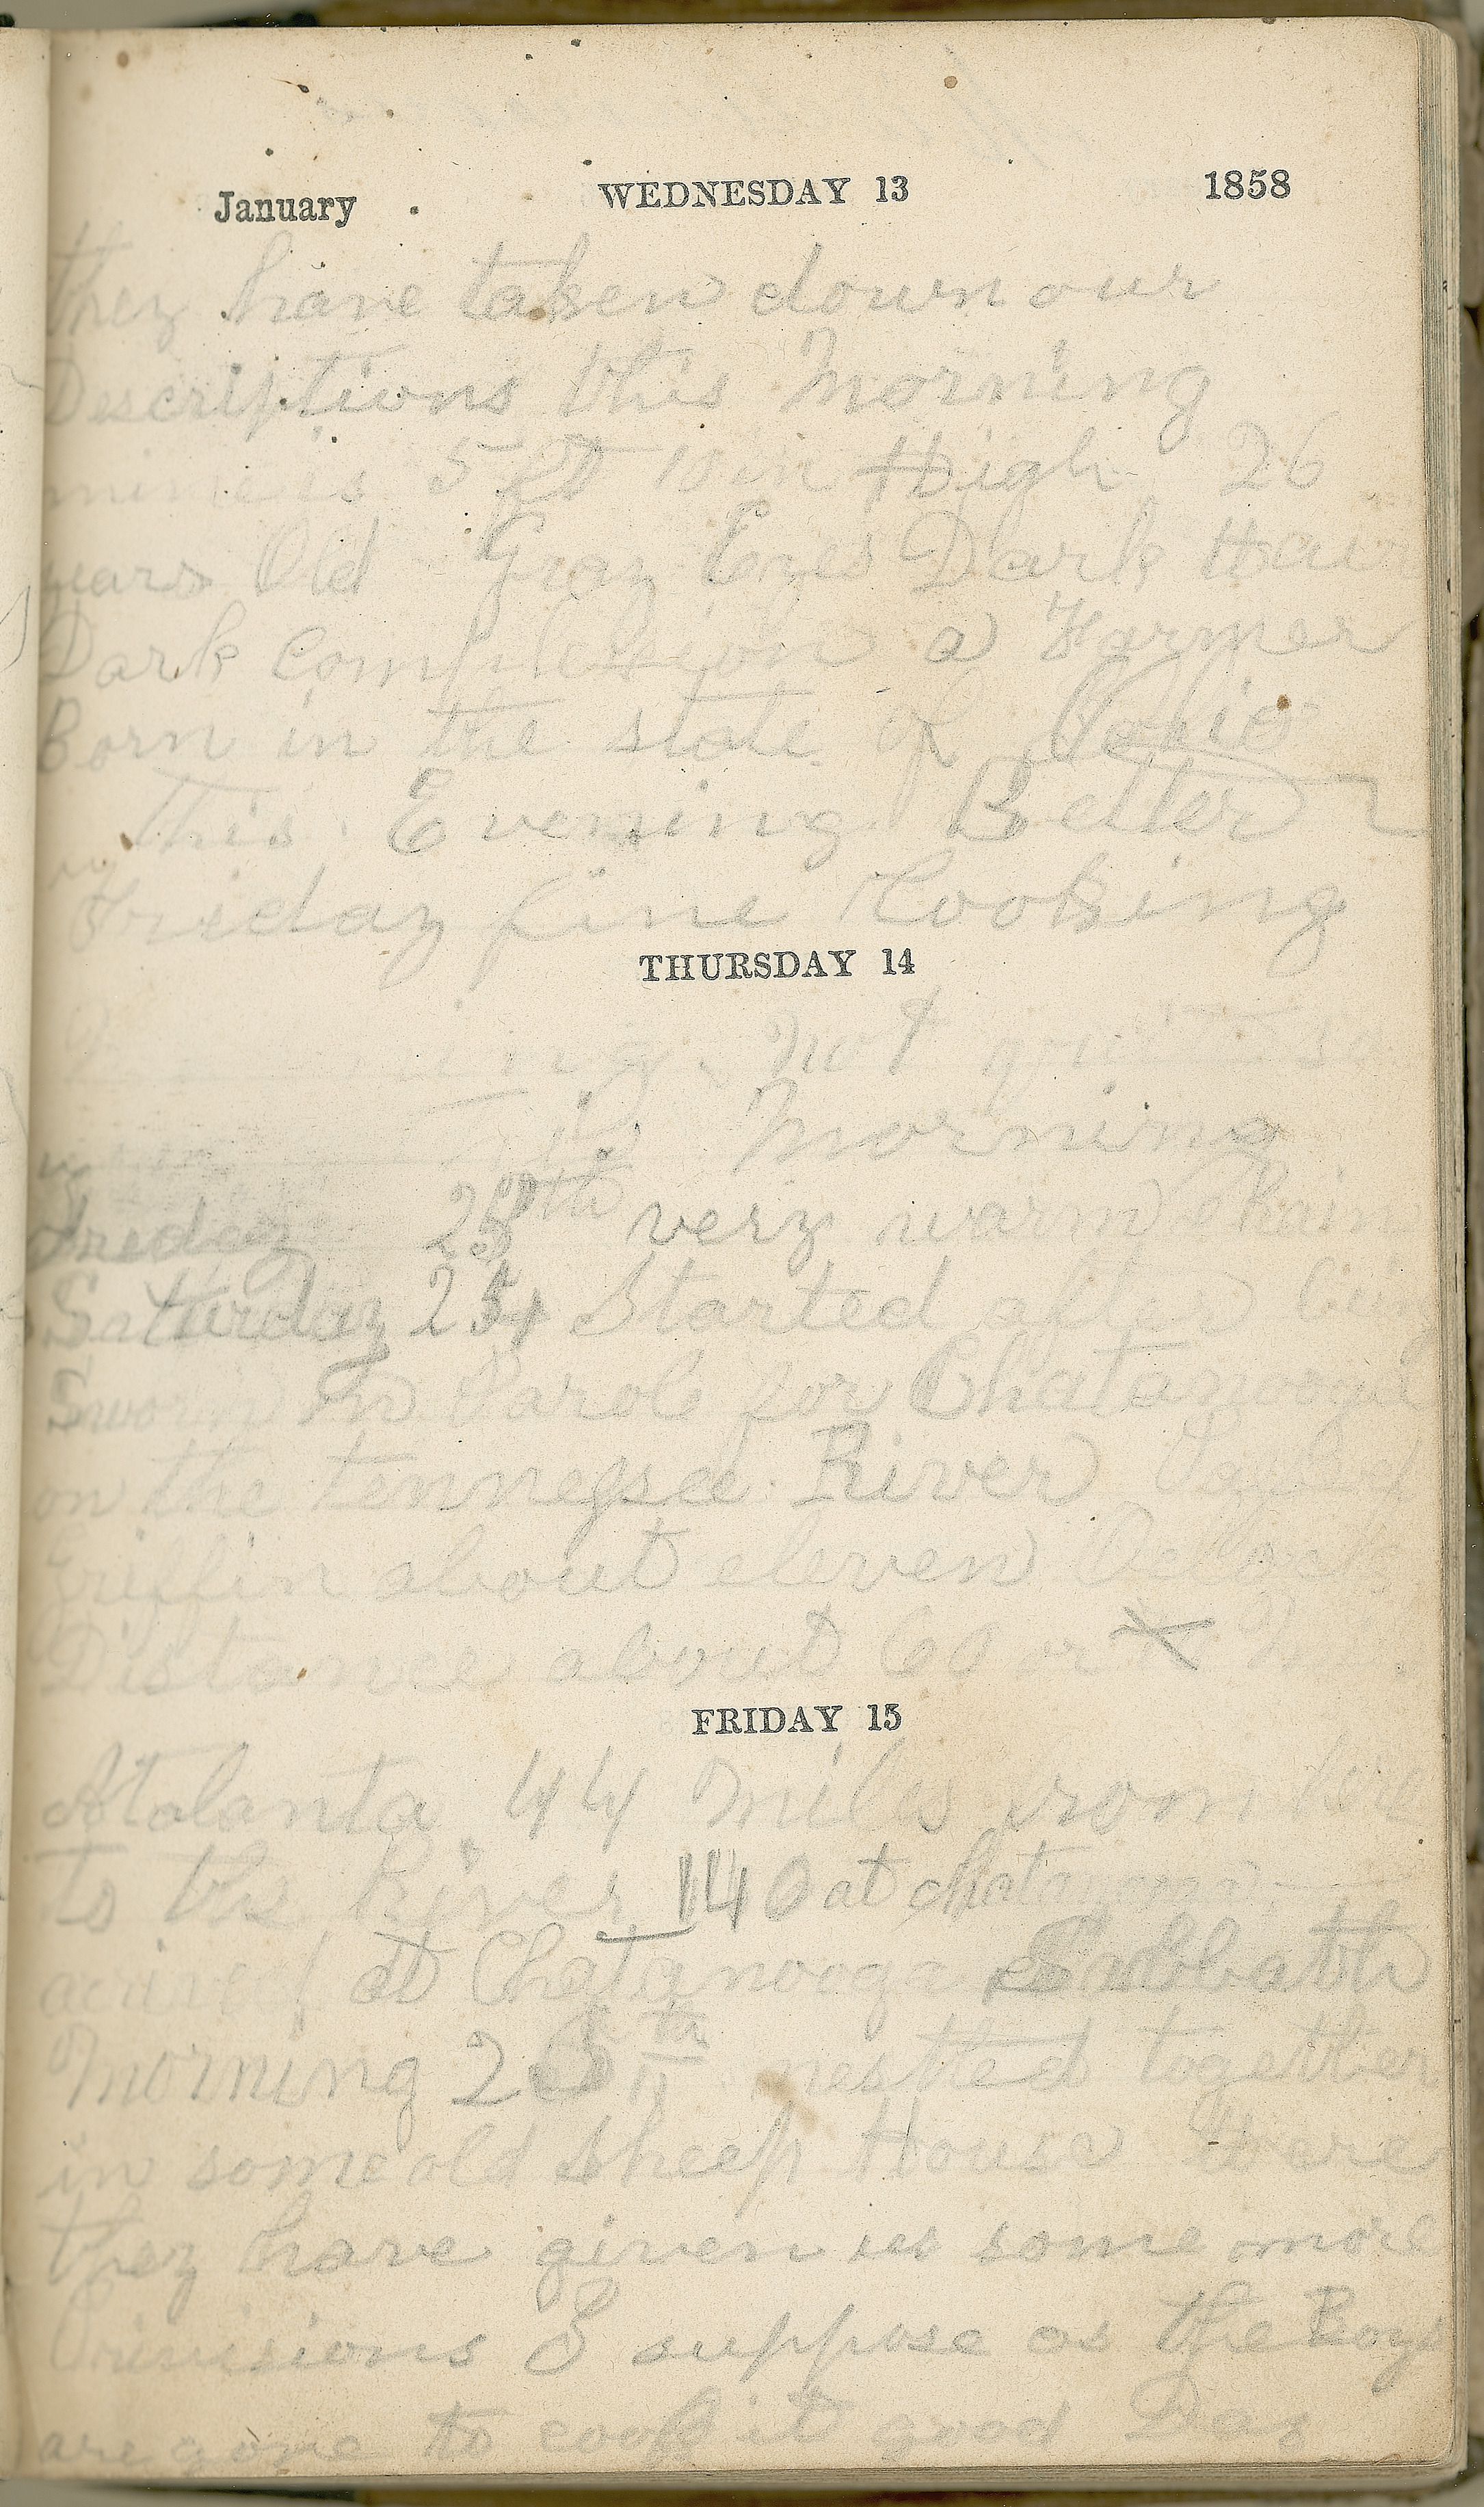 January WEDNESDAY 13 1858
they have taken down our
Descriptions this Morning
mine is 5 ft 10 in High 26
years Old Gray Eyes Dark Hair
Dark Complexion a Farmer
Born in the state of Ohio
This Evening Better
Friday fine looking
THURSDAY 14
not
Morning
Friday 23th very warm Rain
Saturday 24 Started after being
Sworn on Parole for Chatanooga
on the tennessee River
Griffin about eleven Oclock
Distance about 60 or
FRIDAY 15
Atalanta 44 Miles from here
to the River 140 at chatanooga
arived at Chatanooga Sabbath
Morning 25th nestled together
in some old Sheep House Here
they have given us some more
Provisions I suppose as the Boys
are gone to cook it good Day